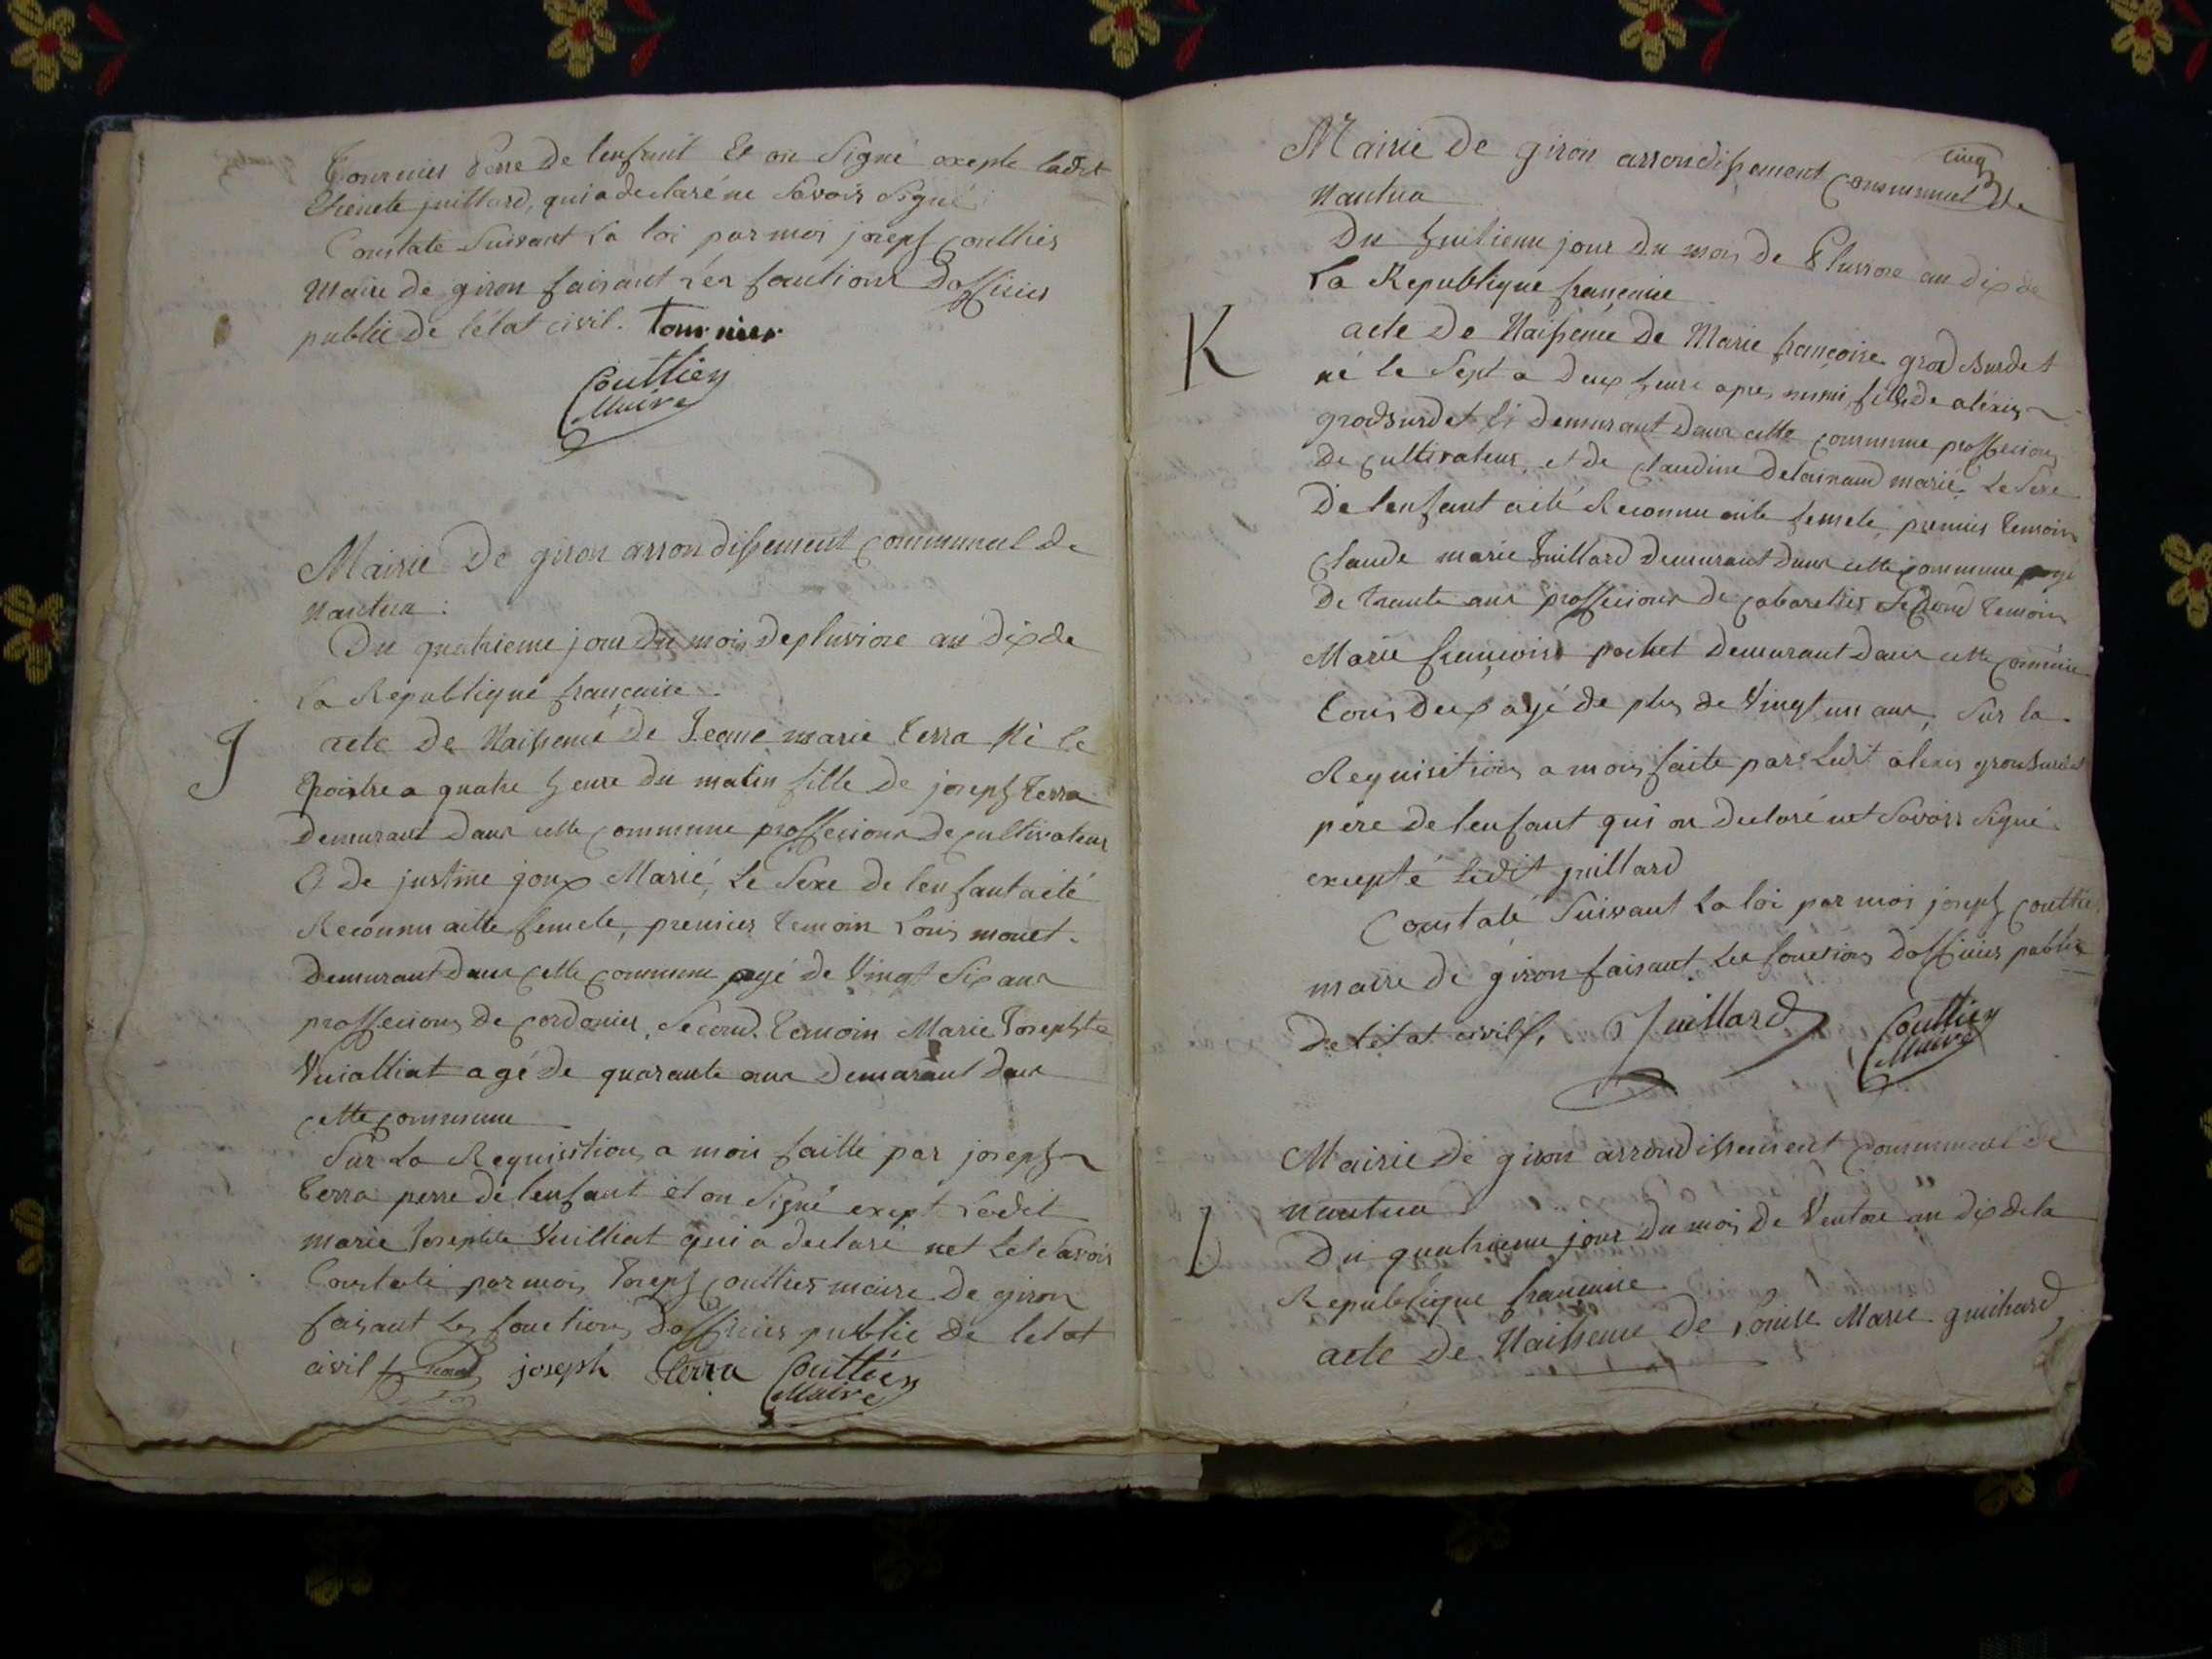 Tournier perre de lenfant Et on Signé exepte ladit
Etienete juillard, qui a declaré ne Savoir Signé
Constaté Suivant La loi par moi joseph Couttier
Maire de giron faisant les fontions Dofficier
public De letat civil. Tournier
Couttier
Maire
Mairie De giron arrondissement communal de
Nantua
Du quatrieme jour Du mois de pluviose an dix de
La Republique francaise
J
acte De Naissence De Jeane marie Terra Né le
troisire a quatre heure du matin fille De joseph Terra
Demurant Dans cette commune proffecions De cultivateur
Et De justine joux Marié, Le Sexe De lenfant a été
Reconnu aitte femele, premier temoin Louis monet
Demurant Dans cette commune agé de Vingt Six ans
proffecions de cordonier, Second temoin Marie Josephte
Vuialliat agé De quarante ans Demurant Dans
cette commune
Sur La Requisition a moi faitte par joseph
Terra perre De lenfant et on Signé exept Ladit
marie Josephte Vuilliat qui a declaré net Le Savoir
Constaté par moi Joseph Couttier maire De giron
faisant Les fonctions Dofficier public De letat
civil joseph Terra Couttier
Maire
cinq
Mairie De giron arrondissement Communal De
Nantua
Du huitieme jour Du mois de Pluviose an dix de
La Republique francaise
K
acte De Naissence De Marie françoise grosburdet
né le Sept a Deux heure apres mimi, fille de alexis
grosburdet Demurant Dans cette commune proffecions
De cultivateur, et de Claudine Delainaud marié Le Sexe
De lenfant a été Reconnu aite femele, premier temoin
Claude marie Juillard Demurant Dans cette commune agé
De trante ans proffecions De cabaretier Second temoin
Marie françoise pochet Demurant Dans cette commune
tous Deux agé de plus de Vingt un ans, Sur la
Requisition a moi faite par Ledit alexis grosburdet
pere De lenfant qui on Declaré net Savoir Signé
excepté Ledit juillard
Constaté Suivant La loi par moi joseph Couttier
maire De giron faisant Les fonctions Dofficier public
De letat civill, Juillard Couttier
Maire
Mairie De giron arrondissement Communal De
Nantua
L
Du quatrieme jour Du mois De Ventose an dix de la
Republique francaise
acte De Naissence De Louise Marie guichard